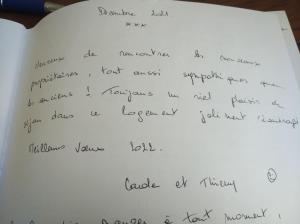 Décembre 2021
***
Heureux de rencontrer les nouveaux
propriétaires, tout aussi sympathiques que
les anciens ! Toujours un réel plaisir de
séjour dans ce logement joliment
Meilleurs Vœux 2022.
Carole et Thierry
à tout moment,